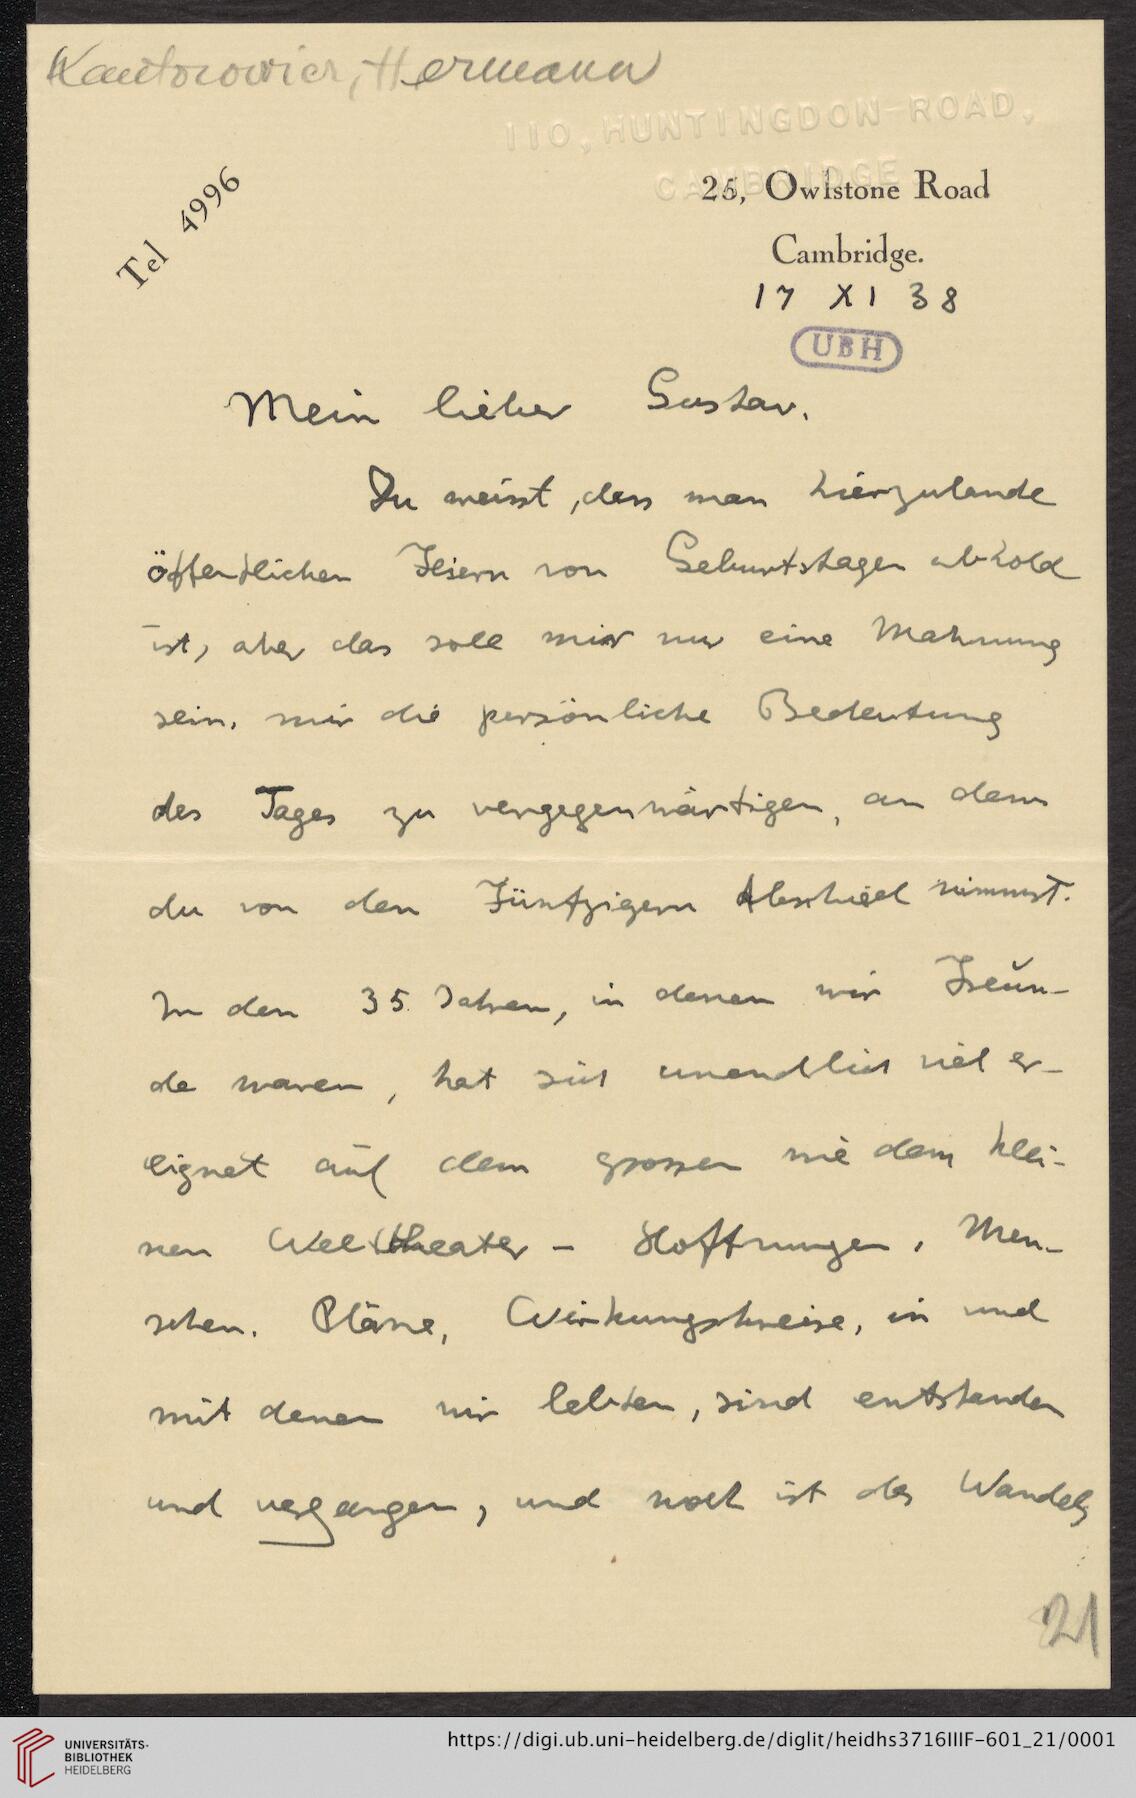 Kantorowicz, Hermann
110, HUNTINGDON ROAD,
CAMBRIDGE
Tel 4996
25, Owlstone Road
Cambridge.
17 XI 38
UBH
Mein lieber Gustav.
Du weisst, dass man hierzulande
öffentlichen Feiern von Geburtstagen abhold
ist, aber das soll mir nur eine Mahnung
sein, mir die persönliche Bedeutung
des Tages zu vergegenwärtigen, an dem
du von den Fünfzigern Abschied nimmst.
In den 35 Jahren, in denen wir Freun-
de waren, hat sich unendlich viel er-
eignet auf dem grossen wie dem klei-
nen Welttheater - Hoffnungen, Men-
schen, Pläne, Wirkungskreise, in und
mit denen wir lebten, sind entstanden
und vergangen, und noch ist des Wandels
21
UNIVERSITÄTS-
BIBLIOTHEK
HEIDELBERG
https://digi.ub.uni-heidelberg.de/diglit/heidhs3716IIIF-601_21/0001